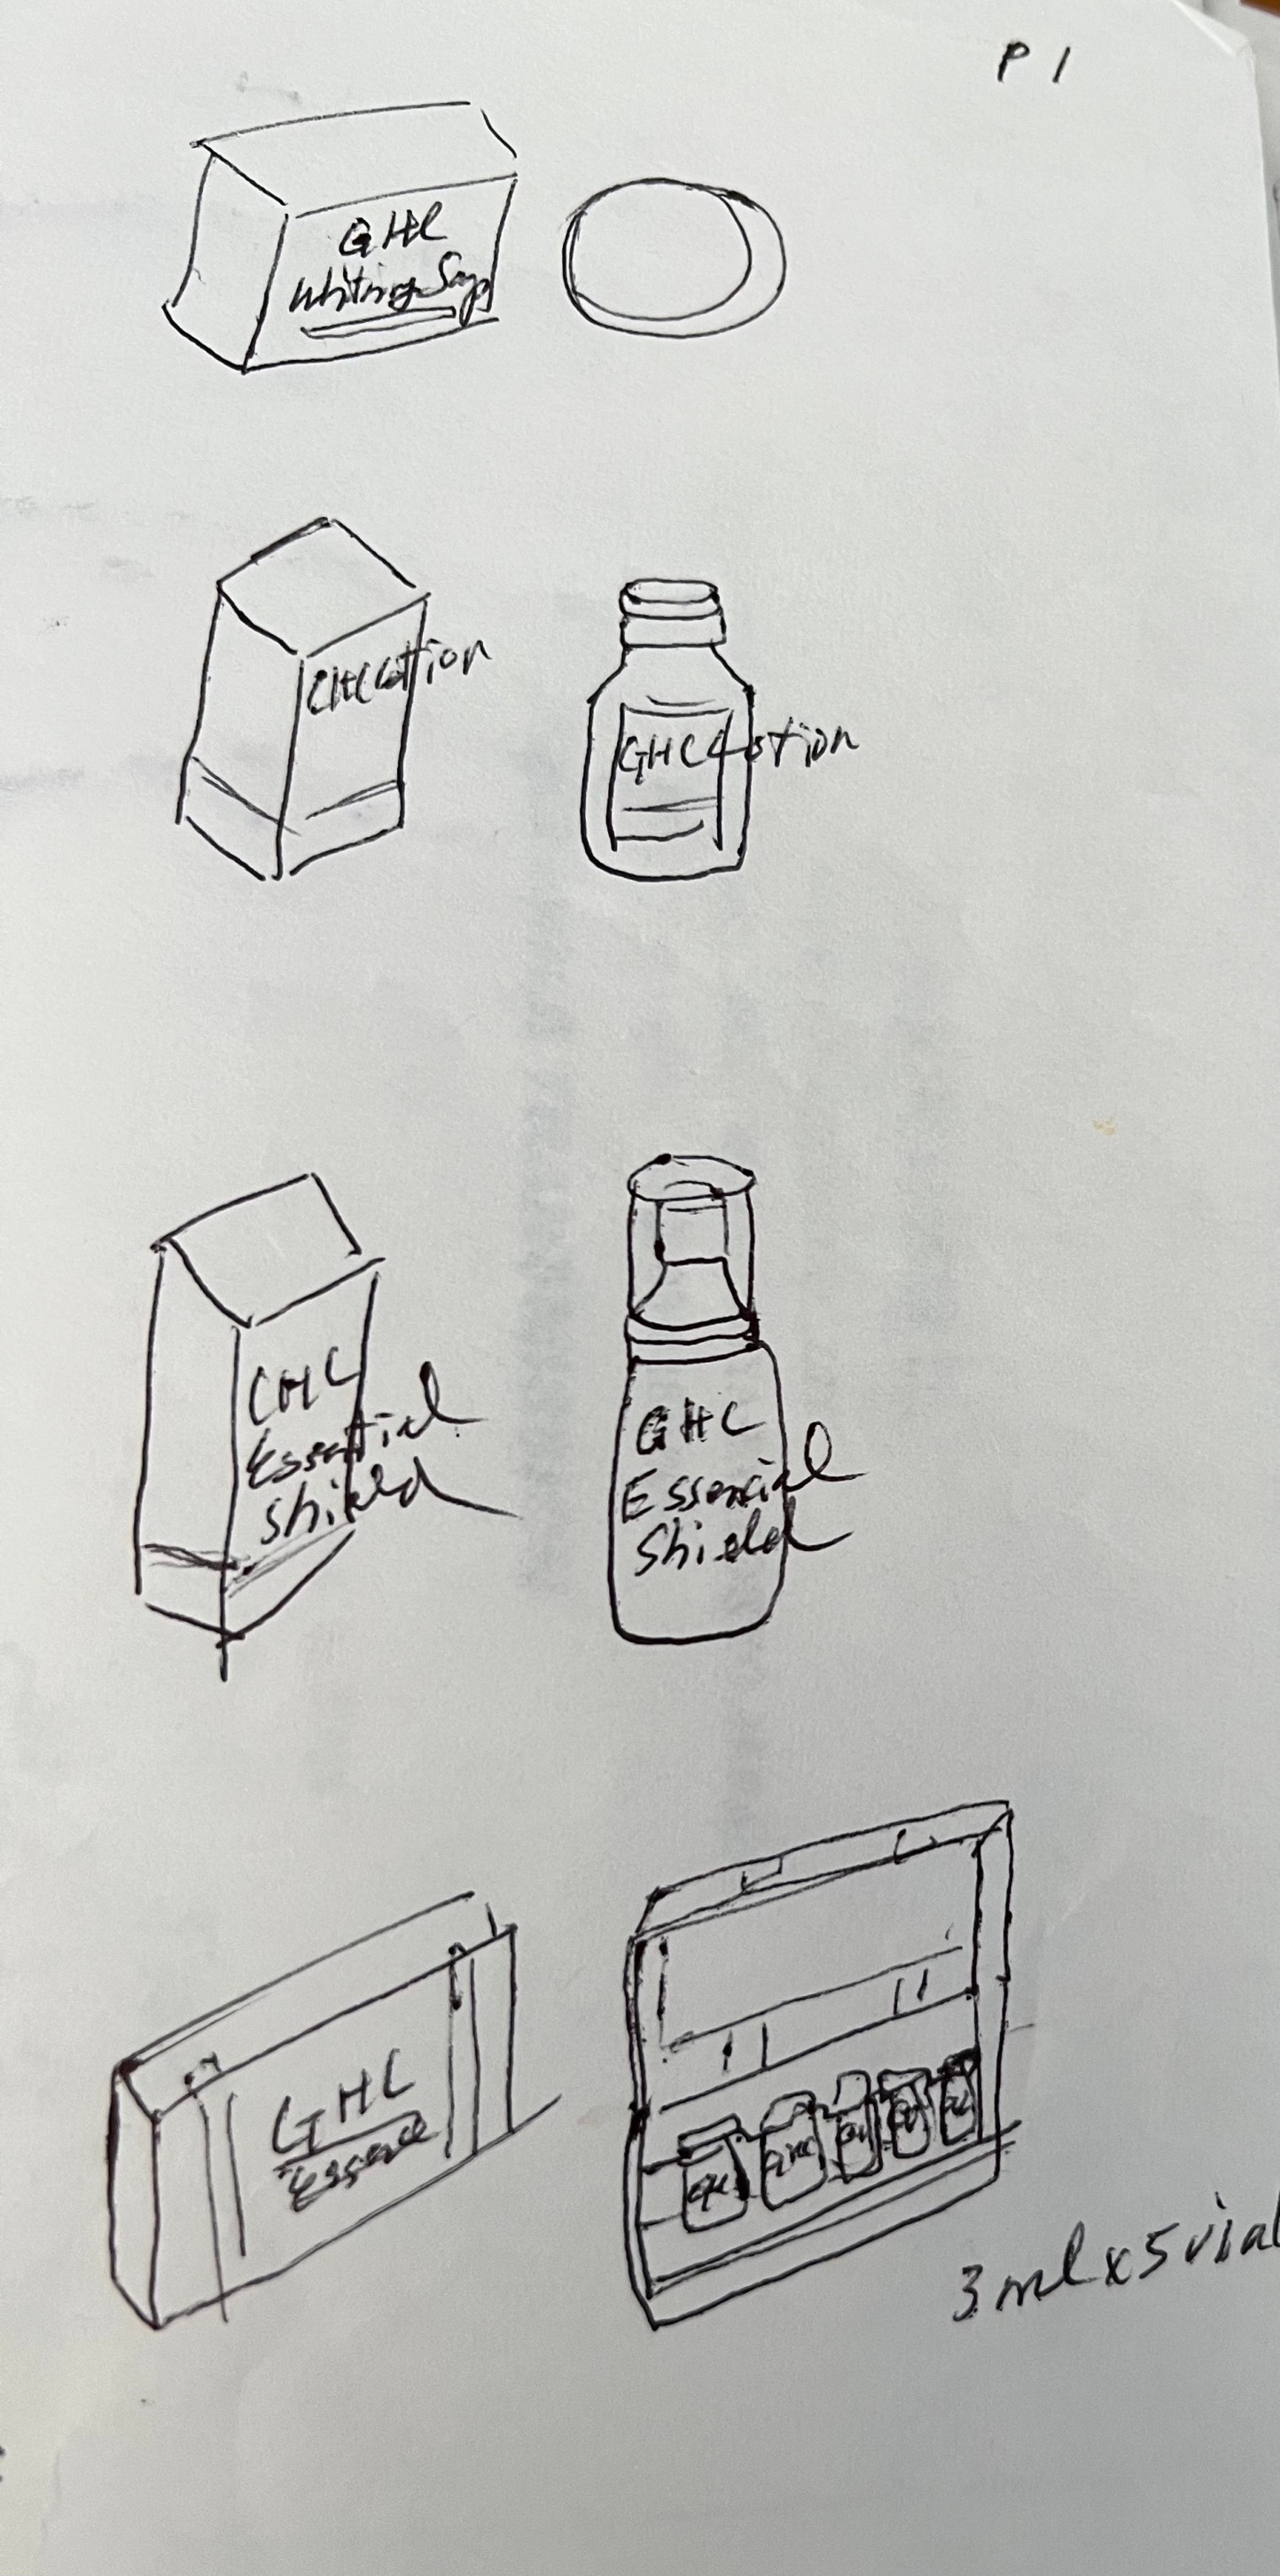 P 1
GHC
Whiting Soap
GHC Lotion
GHC Lotion
GHC
Essential
Shield
GHC
Essencial
Shield
GHC
Essence
3ml x 5 vial